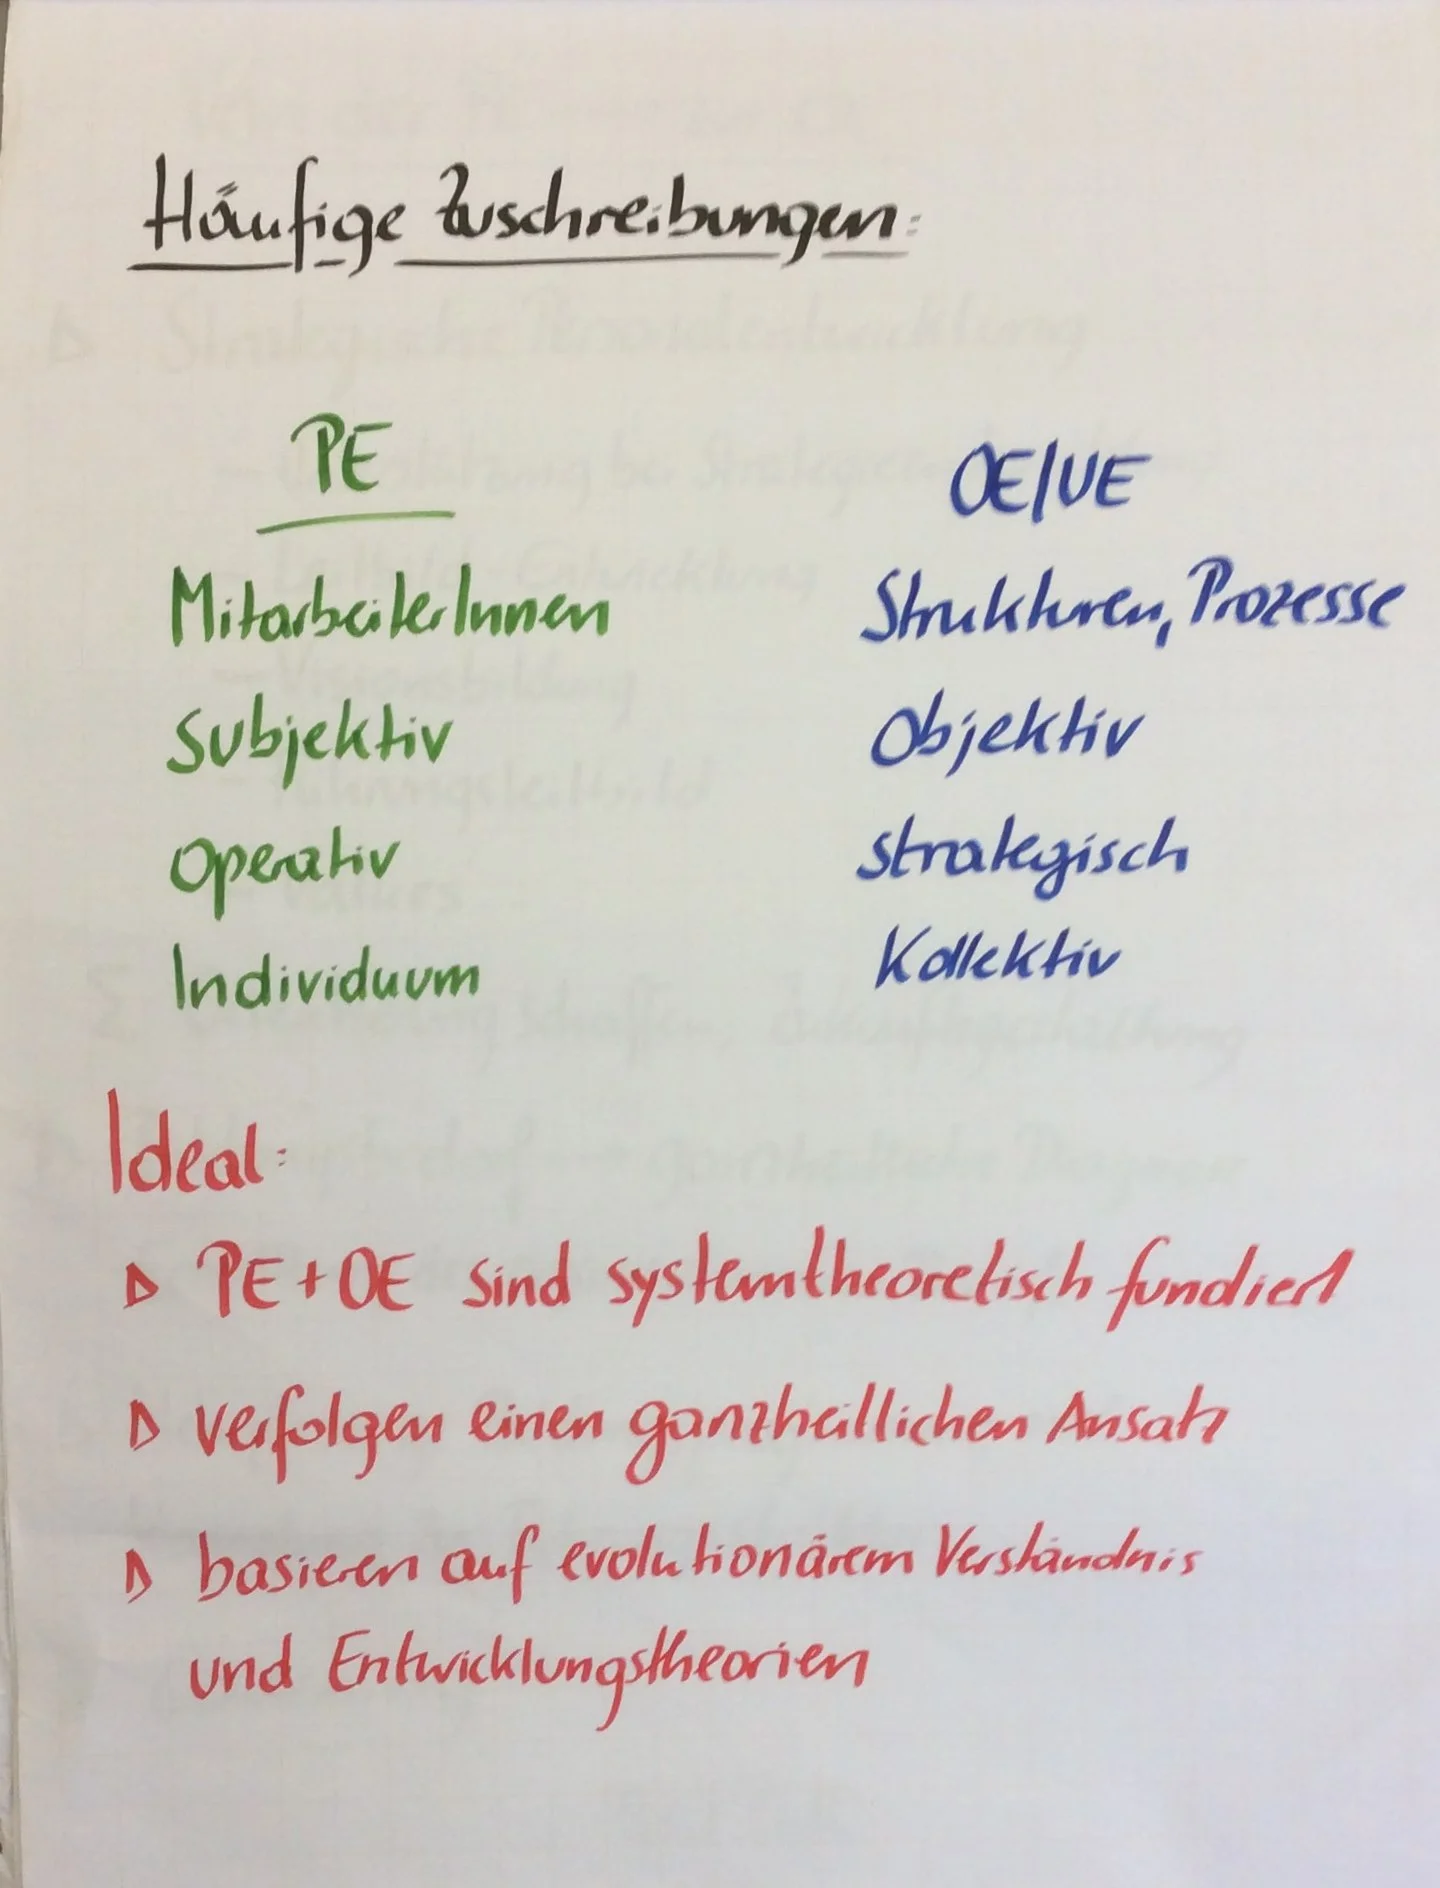 Häufige Zuschreibungen:
PE OE/UE
MitarbeiterInnen Strukturen, Prozesse
Subjektiv Objektiv
Operativ strategisch
Individuum Kollektiv
Ideal:
▷ PE + OE sind systemtheoretisch fundiert
▷ verfolgen einen ganzheitlichen Ansatz
▷ basieren auf evolutionärem Verständnis
und Entwicklungstheorien